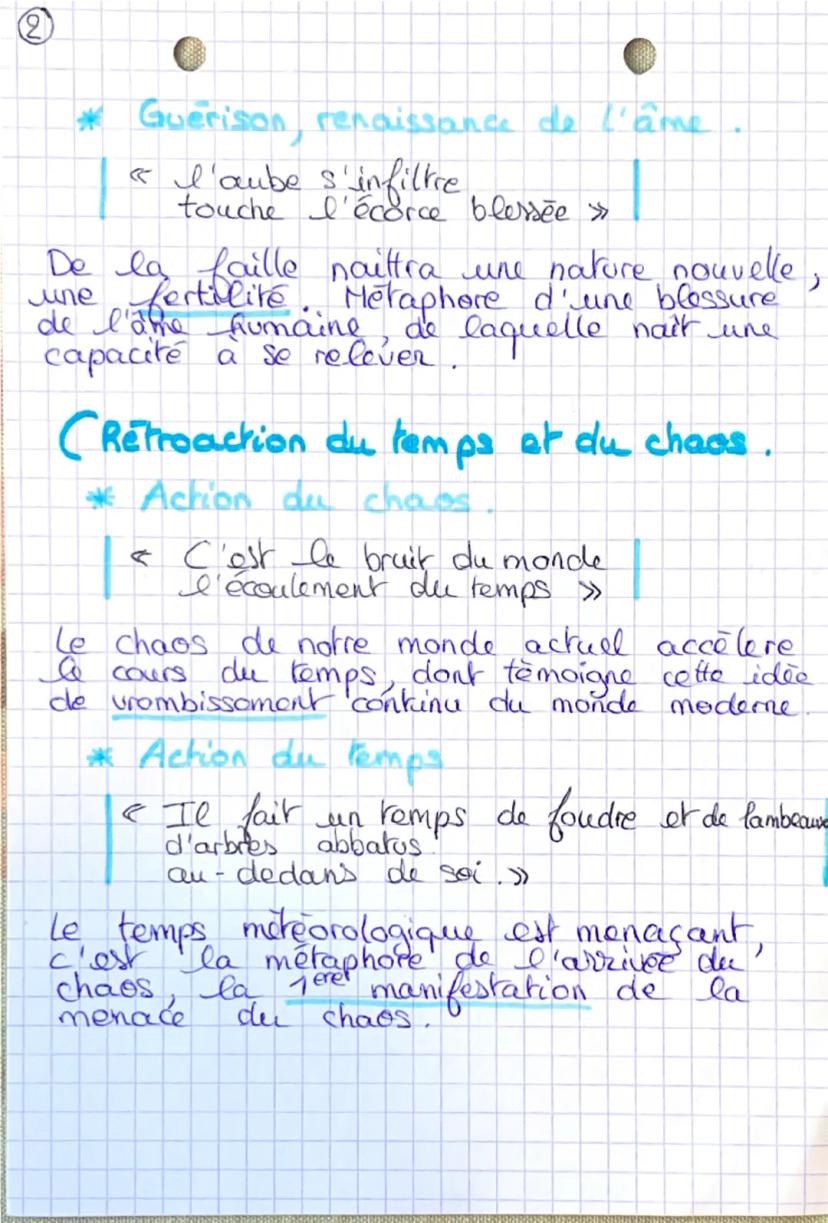 2
* Guérison, renaissance de l'âme.
« l'aube s'infiltre
touche l'écorce blessée »
De la faille naîttra une nature nouvelle,
une fertilité. Métaphore d'une blessure
de l'âme humaine, de laquelle naît une
capacité à se relever.
( Rétroaction du temps et du chaos.
* Action du chaos.
« C'est le bruit du monde
l'écoulement du temps »
Le chaos de notre monde actuel accélère
le cours du temps, dont témoigne cette idée
de vrombissement continu du monde moderne.
* Action du temps
« Il fait un temps de foudre et de lambeaux
d'arbres abbatus
au-dedans de soi. »
Le temps météorologique est menaçant,
c'est la métaphore de l'arrivée du
chaos, la 1ère manifestation de la
menace du chaos.